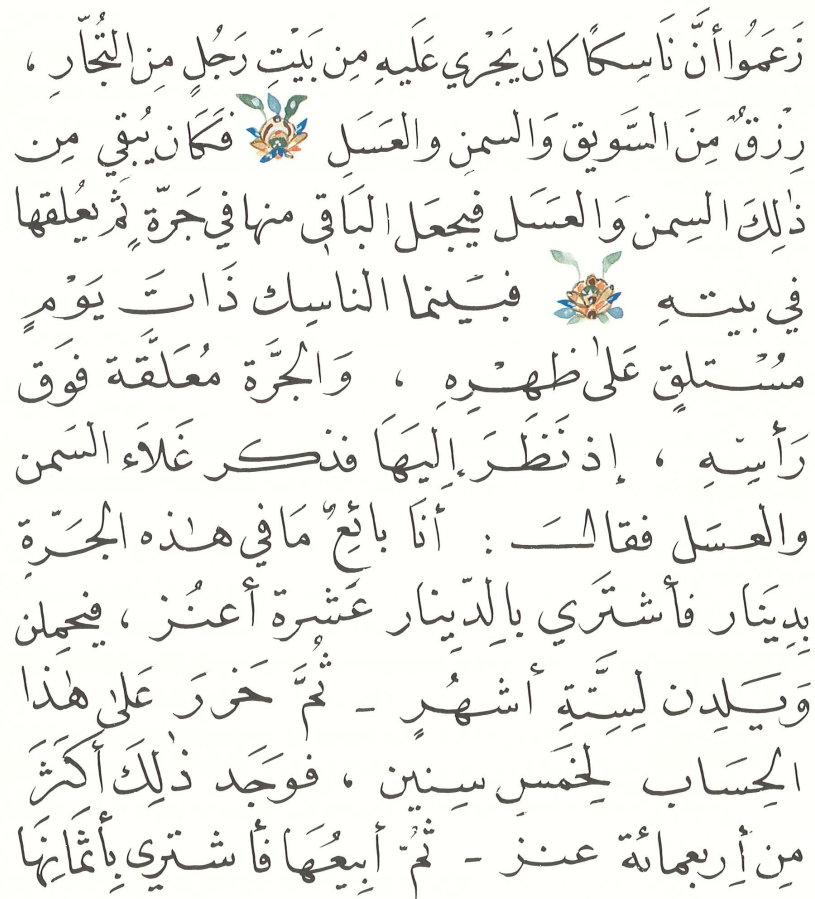 زَعَمُوا أنَّ نَاسِكًا كان يَجْري عَلَيهِ مِن بَيْتِ رَجُلٍ مِن التُجَّارِ ،
رِزْقٌ مِنَ السَّويق وَالسمنِ والعَسَلِ فَكَان يُبْقي مِن
ذٰلِكَ السِمن وَالعسَل فيجعَل البَاقى منها في جَرّةٍ ثم يعُلقها
في بيتهِ فبَينما الناسِك ذَاتَ يَوْمٍ
مسْتلقٍ عَلىٰ ظهْرِهِ ، وَالجَرَّة مُعَلَّقة فَوَق
رَأسِهِ ، إذ نَظَرَ إليهَا فذكر غَلاَء السَمن
والعسَل فقالَ : أنَا بائِعٌ مَا في هٰذه الجَرّةِ
بِدِيَنَار فأشتَرَي بالِدّيِنار عَشْرة أعنُز ، فيحمِلن
وَيَلِدن لِستَّةِ أشهُرٍ - ثُمَّ حَزرَ عَلىٰ هٰذا
الحِسَاب لِخمَسِ سِنيِن ، فوَجَد ذٰلِكَ أكَثَرَ
مِن أربعمائة عنز - ثُمّ أبِيعُهَا فأشتري بِأثمَانِهَا